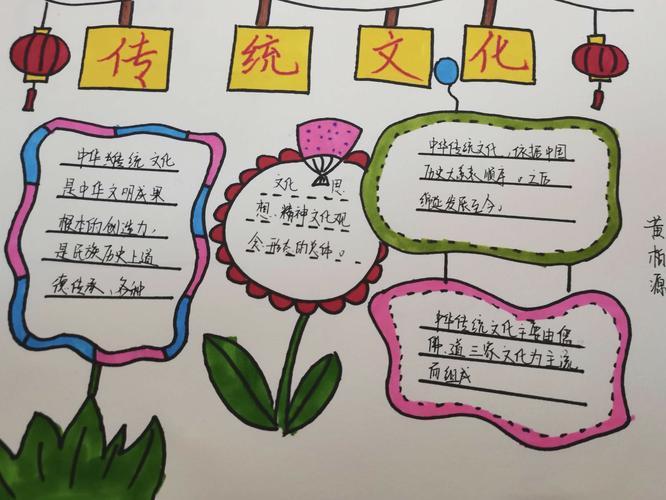 传统文化
中华传统文化
是中华文明成果
根本的创造力，
是民族历史上道
德传承、各种
文化 思
想、精神文化观
念形态的总体。
中华传统文化，依据中国
历史大系表顺序。之后
绵延发展至今。
中华传统文化主要由儒
佛、道三家文化为主流
而组成
黄柏源